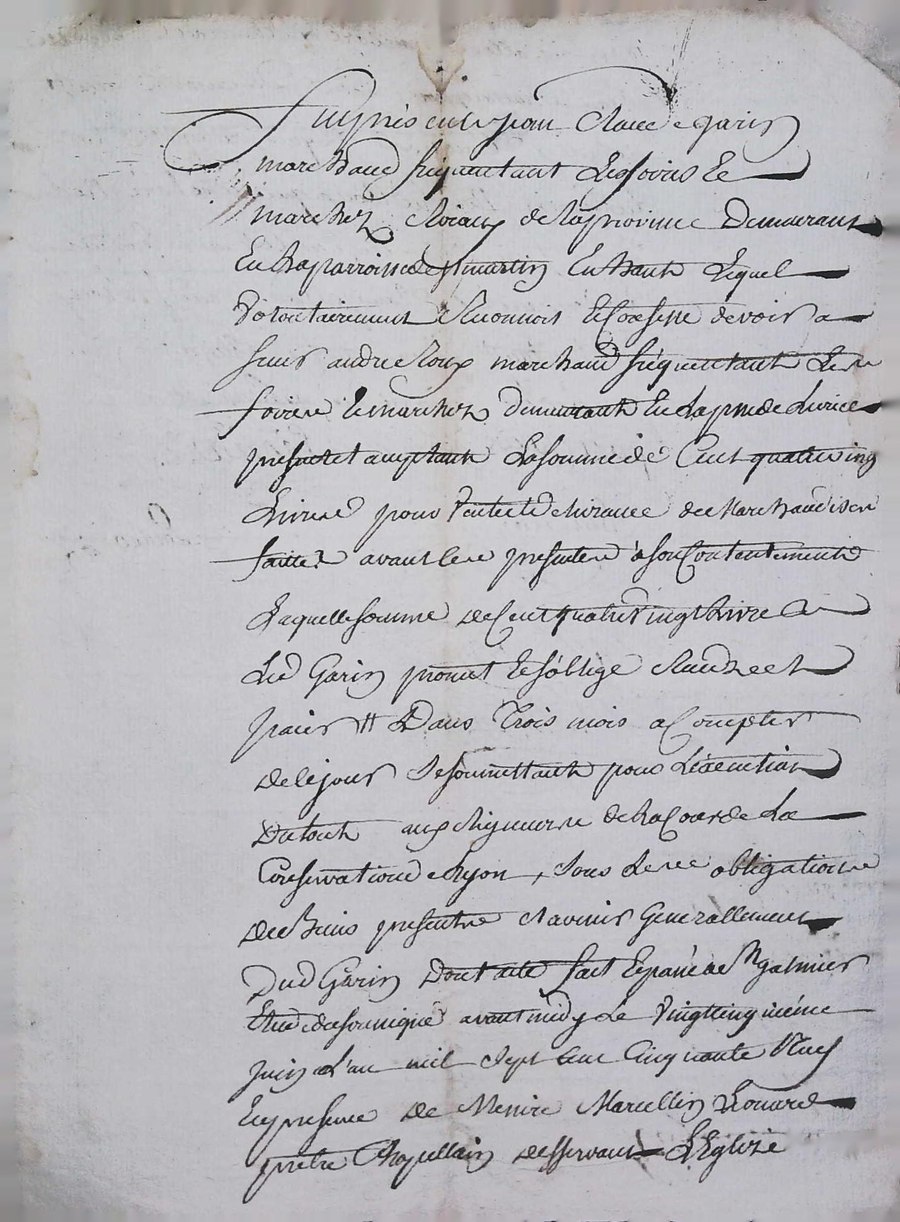 Fut présent Jean Claude Garin
marchand fréquentant Les foires Et
marchez Voisins de la province Demeurant
En La parroisse de St martin En haut Lequel
Volontairement Reconnoit Et Confesse devoir a
sieur andré Roux marchand fréquentant Les
foires Et marchez Demeurant En La psse de
present et acceptant La somme de Cent quatre ving
Livres pour Vente Et delivrance de Marchandises
faittes avant Les presentes à son Contentement
Laquelle somme de Cent quatre Vingt Livres
Led Garin promet Et s'oblige Rendre et
paier Dans Trois mois a Compter
de Ce jour se soumettant pour L'execution
Du tout aux Rigueurs de La Cour de La
Conservation de Lyon, sous Les obligations
de ses Biens presents et avenir Generallement
Dud Garin Dont acte fait Et passé a St galmier
Etude du soussigné avant midy Le Vingt cinq
juin L'an mil sept Cent Cinquante Neuf
En presence de Messire Marcellin
prêtre Chapellain desservant L'Eglise